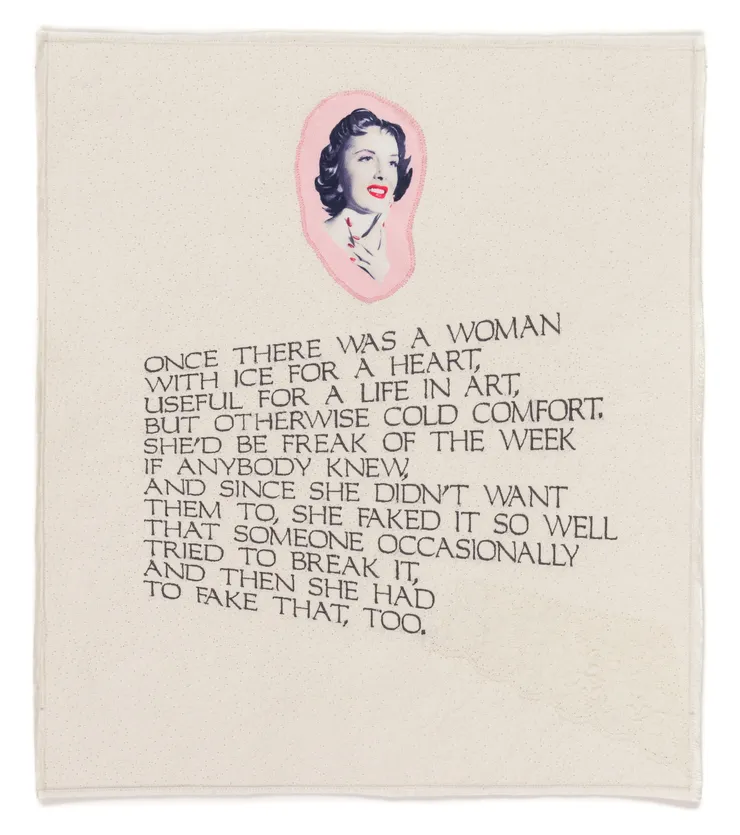 ONCE THERE WAS A WOMAN
WITH ICE FOR A HEART,
USEFUL FOR A LIFE IN ART,
BUT OTHERWISE COLD COMFORT.
SHE'D BE FREAK OF THE WEEK
IF ANYBODY KNEW,
AND SINCE SHE DIDN'T WANT
THEM TO, SHE FAKED IT SO WELL
THAT SOMEONE OCCASIONALLY
TRIED TO BREAK IT,
AND THEN SHE HAD
TO FAKE THAT, TOO.